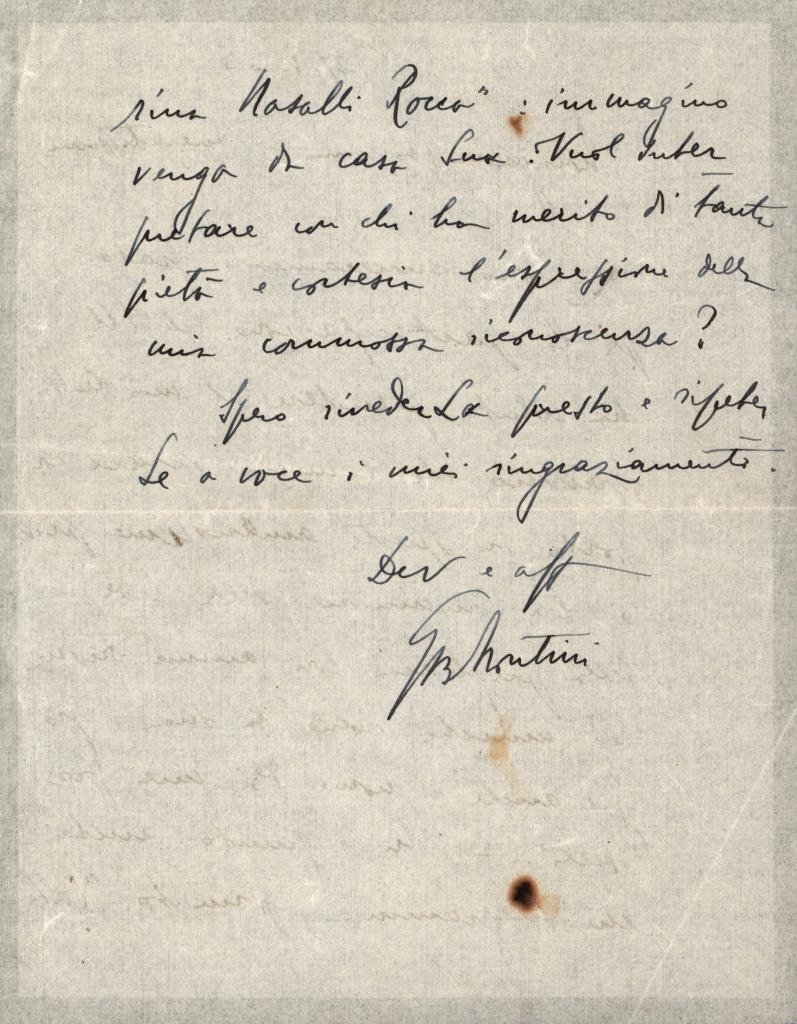 rina Nasalli Rocca" : immagino
venga da casa Sua. Vuol inter
pretare con chi ha merito di tanta
pietà e cortesia l'espressione della
mia commossa riconoscenza?
Spero rivederLa presto e ripeter
Le a voce i miei ringraziamenti.
Dev e aff
GBMontini